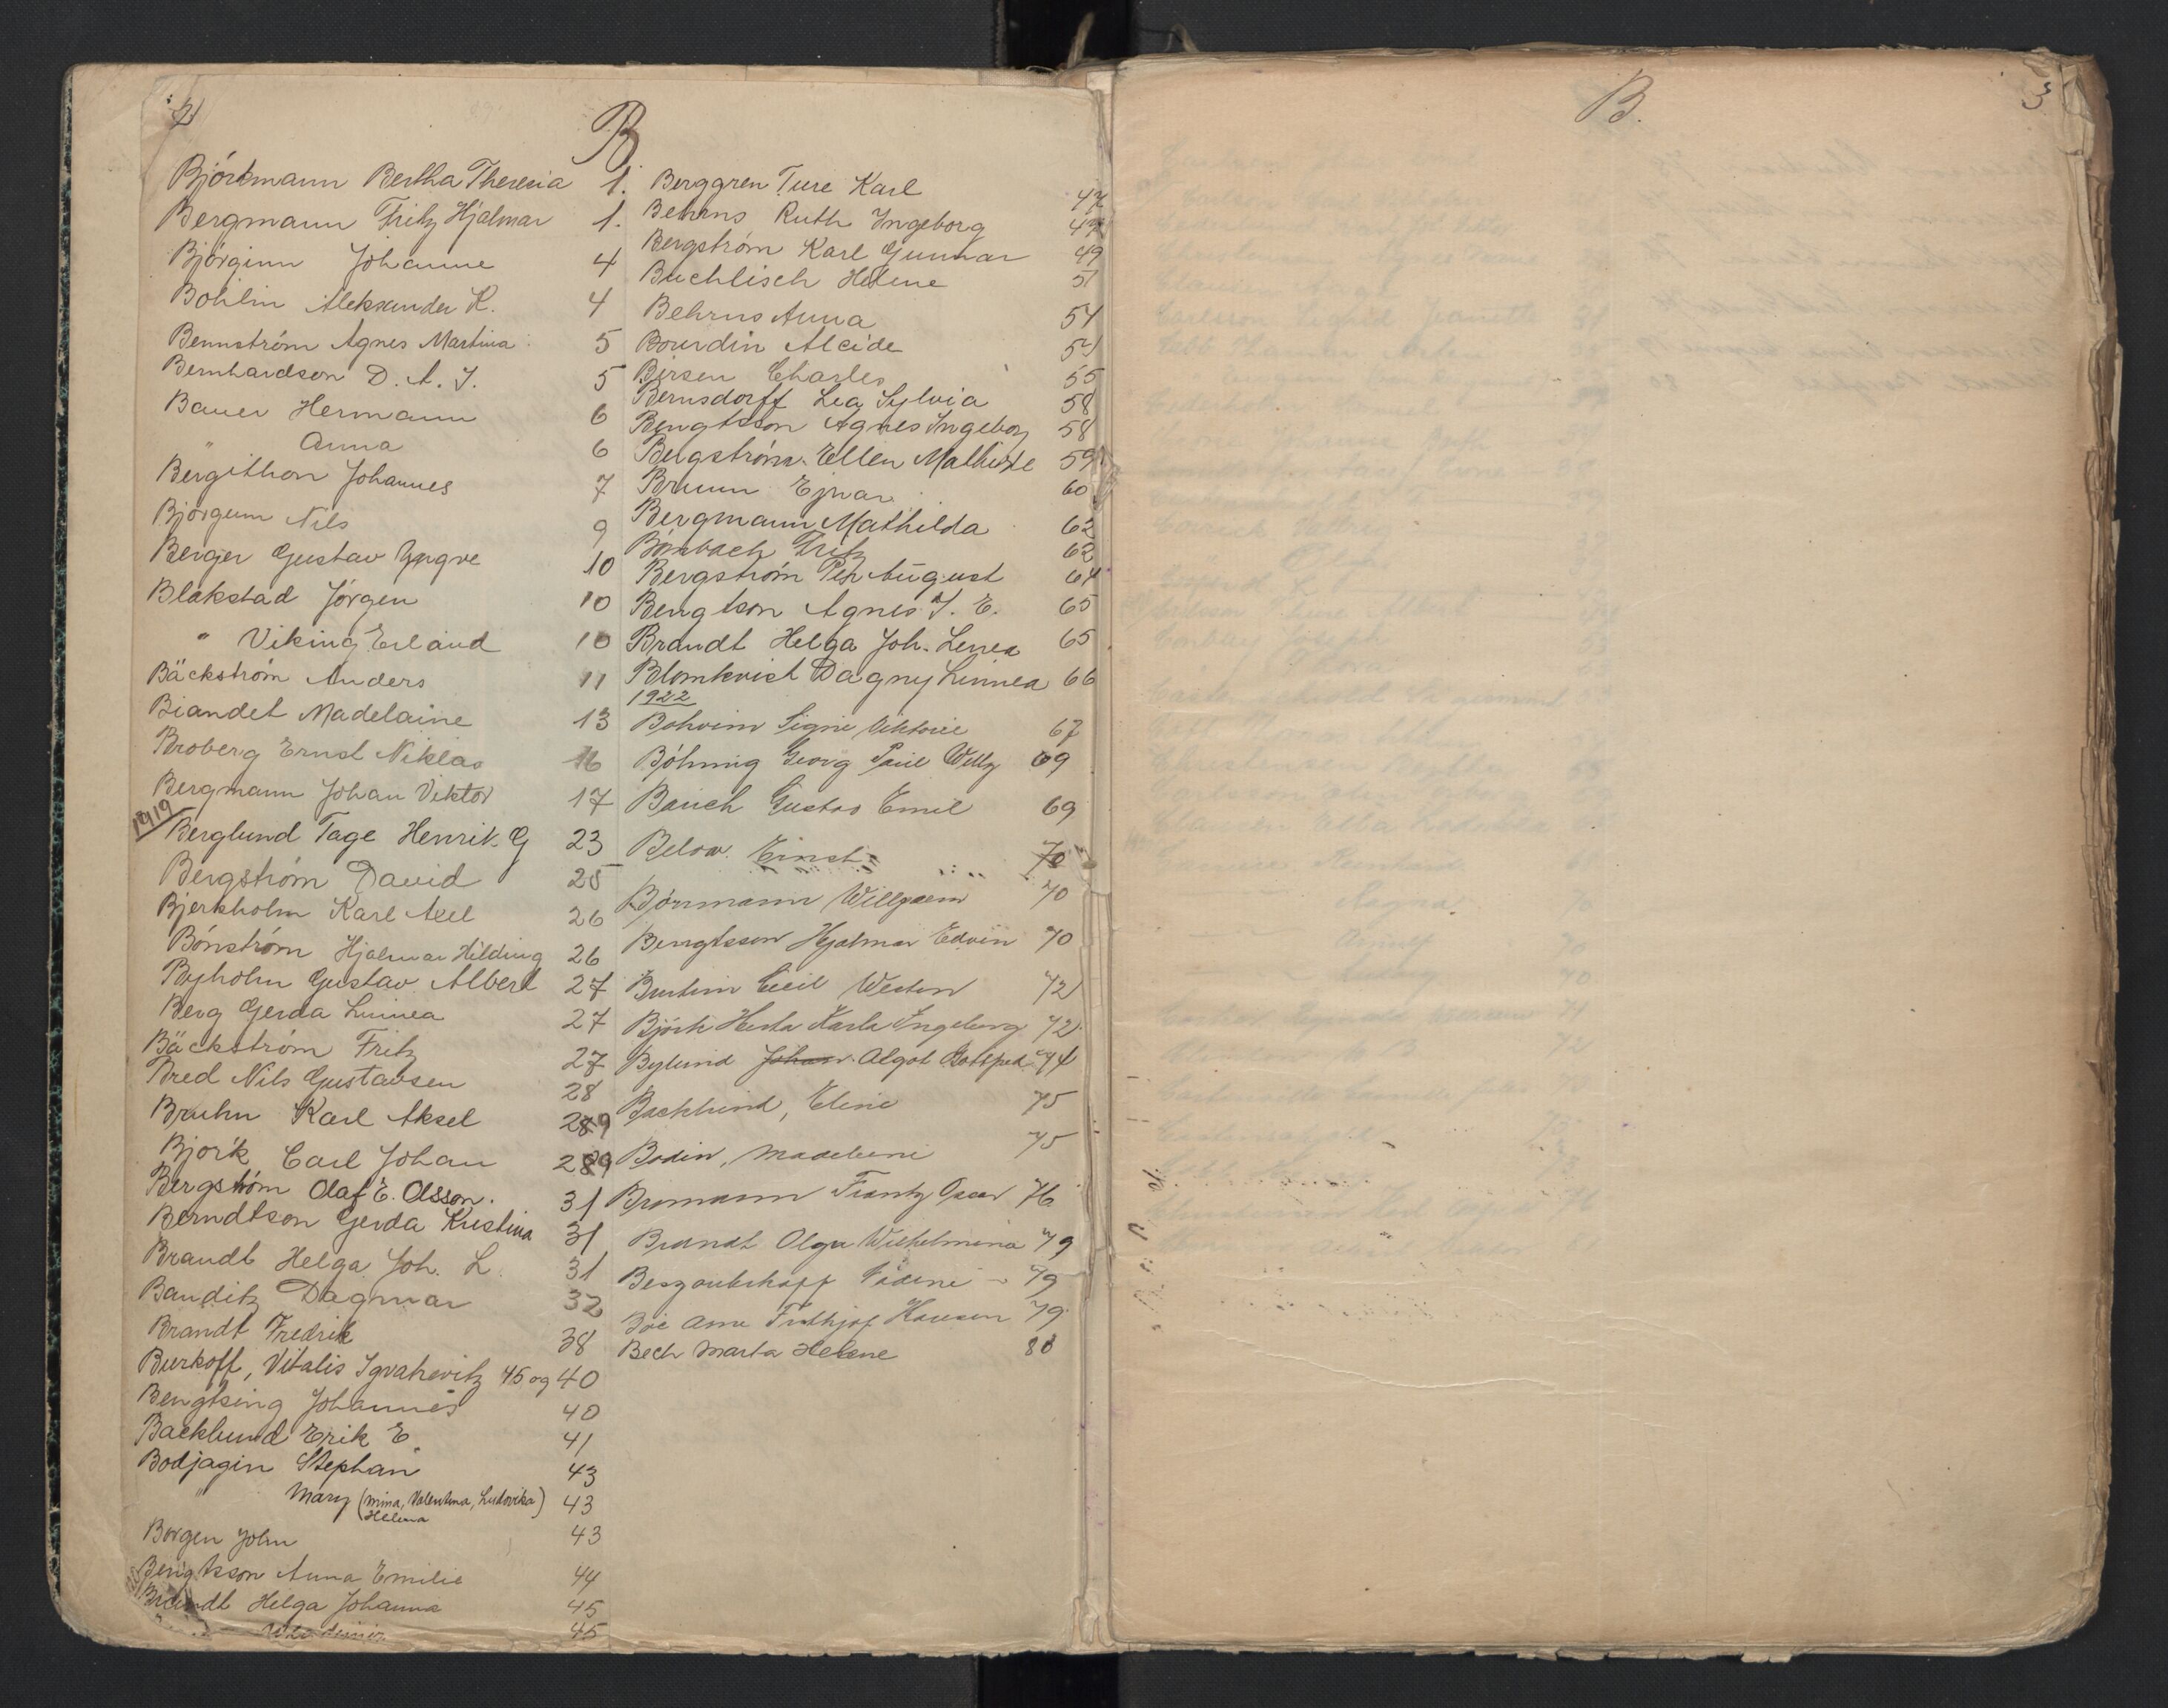 2
B
Björkmann Bertha Theresia 1.
Bergmann Fritz Hjalmar 1.
Björginn Johanne 4
Bohlin Aleksander K. 4
Bennström Agnes Martina 5
Bernhardson D. A. J. 5
Bauer Hermann 6
" Anna 6
Bergithon Johannes 7
Bjørgum Nils 9
Berger Gustav Yngve 10
Blakstad Jørgen 10
" Viking Erland 10
Bäckström Anders 11
Biandet Madelaine 13
Broberg Ernst Niklas 16
Bergmann Johan Viktor 17
1919
Berglund Tage Henrik G 23
Bergström David 25
Bjerkholm Karl Axel 26
Bönström Hjalmar Hilding 26
Byholm Gustav Albert 27
Berg Gerda Linnea 27
Bäckström Fritz 27
Bred Nils Gustavsen 28
Bruhn Karl Aksel 29
Bjork Carl Johan 29
Bergström Olaf E. Olsson. 31
Berndtson Gerda Kristina 31
Brandt Helga Joh. L. 31
Banditz Dagmar 32
Brandt Fredrik 38
Burkoff, Vitalis Ignatievitz 45 og 40
Bengtsing Johannes 40
Backlund Erik E. 41
Bodjagin Stephan 43
" Mary (Mina, Valentina, Ludovika) 43
Helena
Borgen John 43
Bengtsson Anna Emilie 44
Brandt Helga Johanna 45
45
Berggren Ture Karl 47
Behrns Ruth Ingeborg 47
Bergström Karl Gunnar 49
Buchlisch Helene 51
Behrns Anna 54
Bourdin Alcide 54
Birsen Charles 55
Bernsdorff Lea Sylvia 58
Bengtsson Agnes Ingeborg 58
Bergström Ellen Mathilde 59
Bruun Ejnar 60
Bergmann Mathilda 62
Bornbach Fritz 62
Bergström Per August 64
Bengtson Agnes I. E. 65
Brandt Helga Joh. Linea 65
Blomkvist Dagny Linnea 66
1922
Bohvim Signe Viktorie 67
Böhmig Georg Paul Willy 69
Bauch Gustav Emil 69
Below Ernst 70
Björnmann Willgaem 70
Bengtsson Hjalmar Edvin 70
Burtin Cecil Weston 72
Björk Herta Karla Ingeborg 72
Bylund Johan Algot Gottfred 74
Backlund, Eline 75
Bodin, Madelene 75
Bromann Frantz Oscar 76
Brandt Olga Wilhelmina 79
79
Boe Arne Frithjof Hansen 79
Bech Marta Helene 80
B.
3